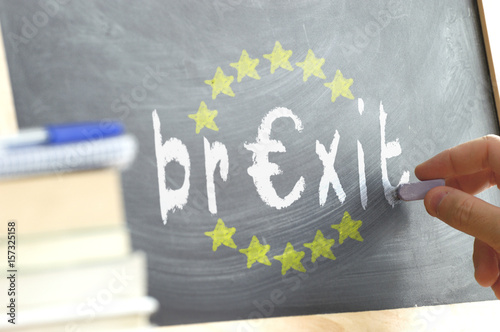 br€xit
Adobe Stock
#157325158